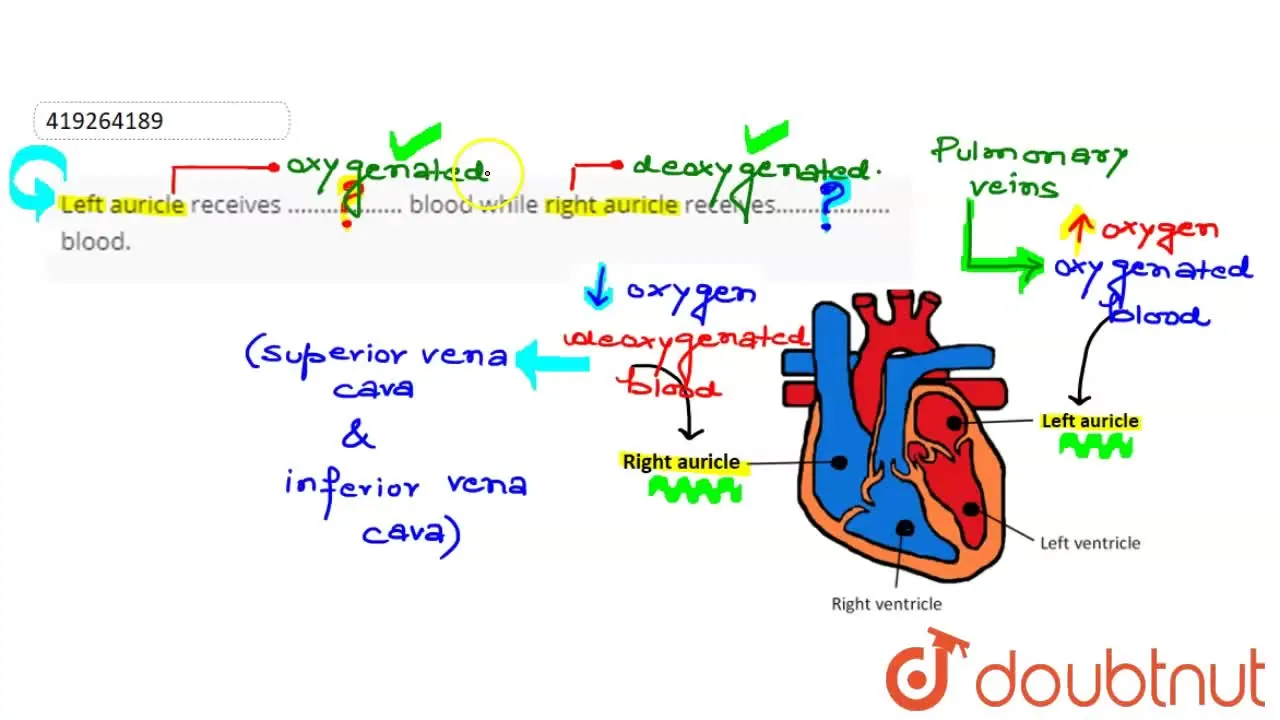 419264189
oxygenated
deoxygenated.
Pulmonary
veins
Left auricle receives .................. blood while right auricle receives..................
?
?
blood.
↑ oxygen
oxygenated
blood
↓ oxygen
deoxygenated
blood
(superior vena
cava
&
inferior vena
cava)
Left auricle
Right auricle
Left ventricle
Right ventricle
doubtnut